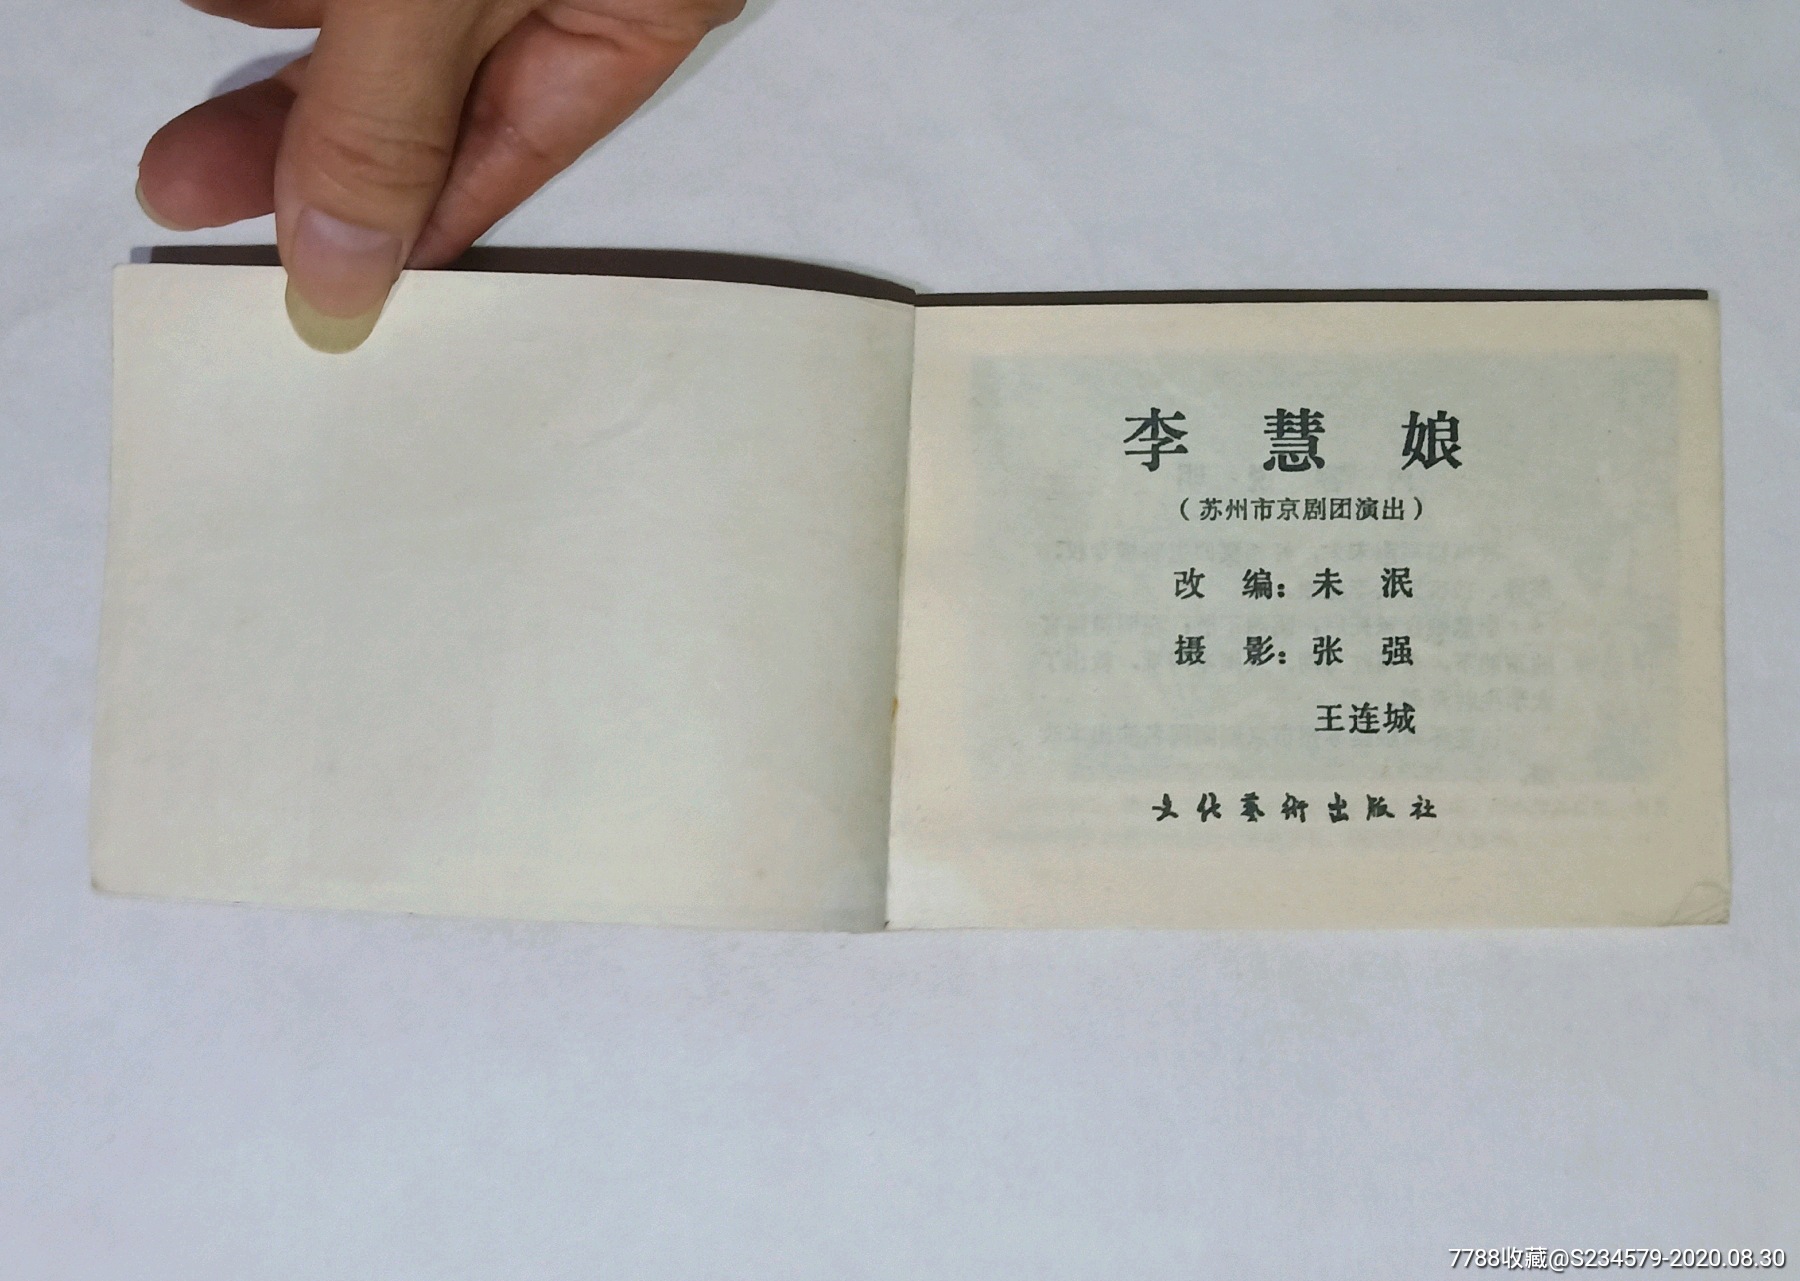 李慧娘
（苏州市京剧团演出）
改编：未泯
摄影：张强
王连城
文化藝術出版社
7788收藏@S234579-2020.08.30